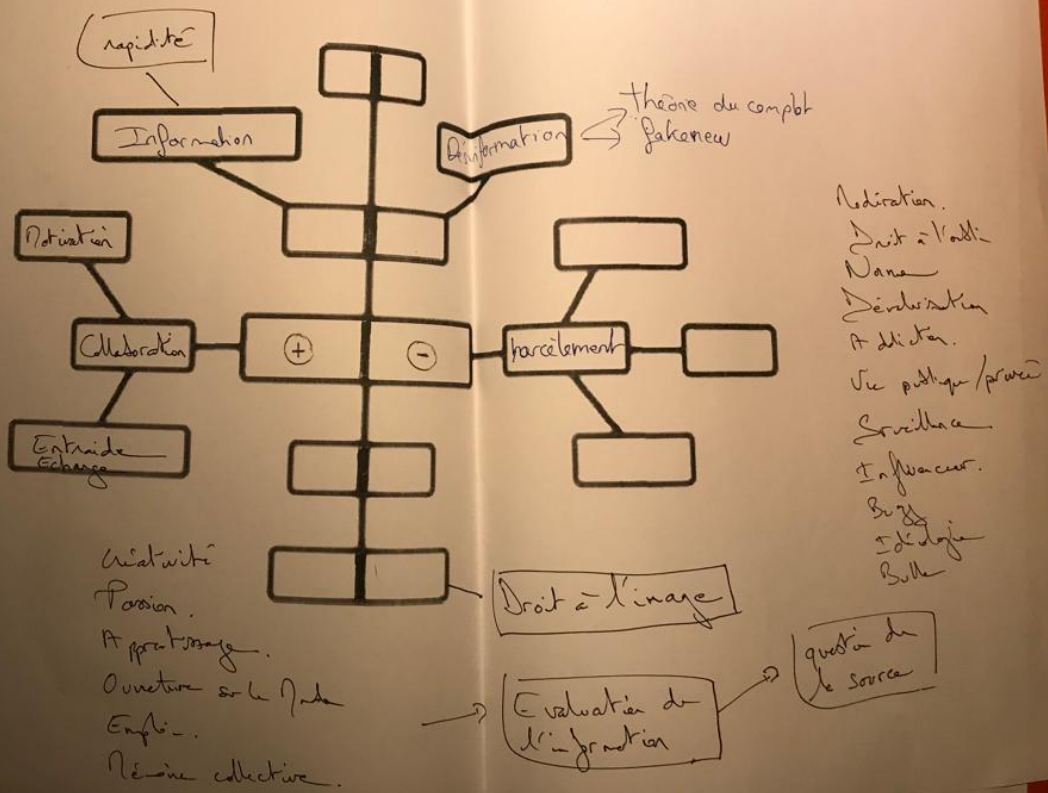 rapidité
Information
Désinformation
théorie du complot
fakenew
Motivation
Collaboration
Entraide
Echange
+
-
harcèlement
Modération.
Droit à l'oubli
Dévalorisation
Addiction.
Vie publique/privée
Surveillance
Influenceur.
Buzz
Idéologie
Bulle
Créativité
Passion.
Apprentissage.
Ouverture sur le Monde
Emploi.
Mémoire collective.
Droit à l'image
Evaluation de
l'information
question de
la source